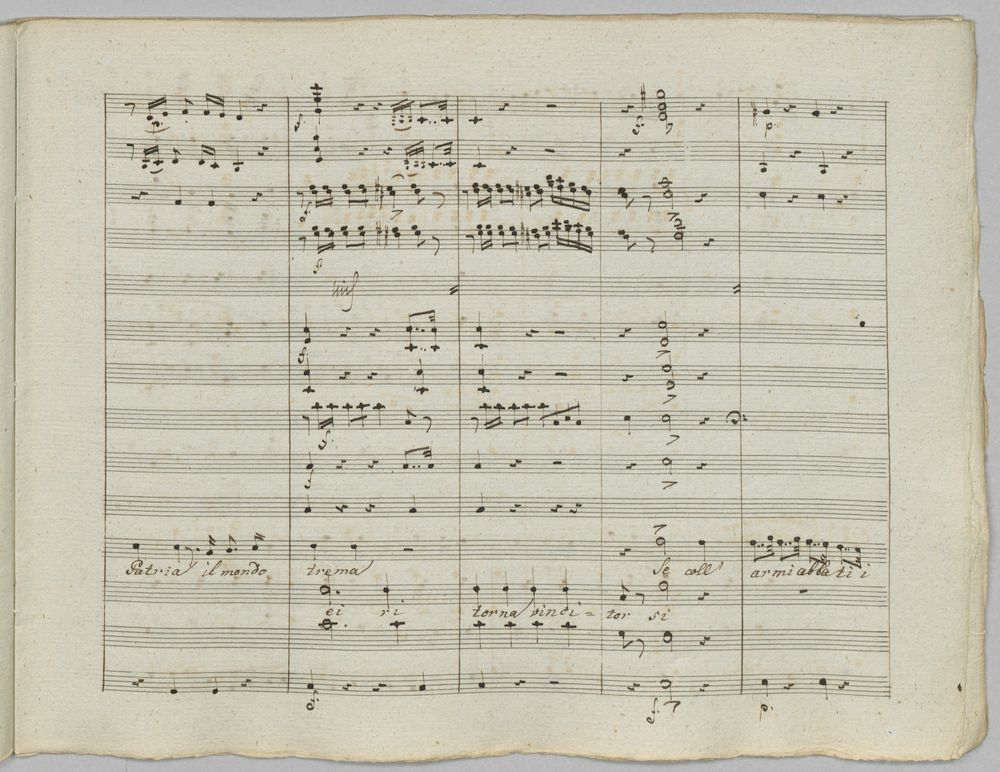 Patria il mondo trema Se coll' armi abbatti i
ei ri torna vinci = tor si